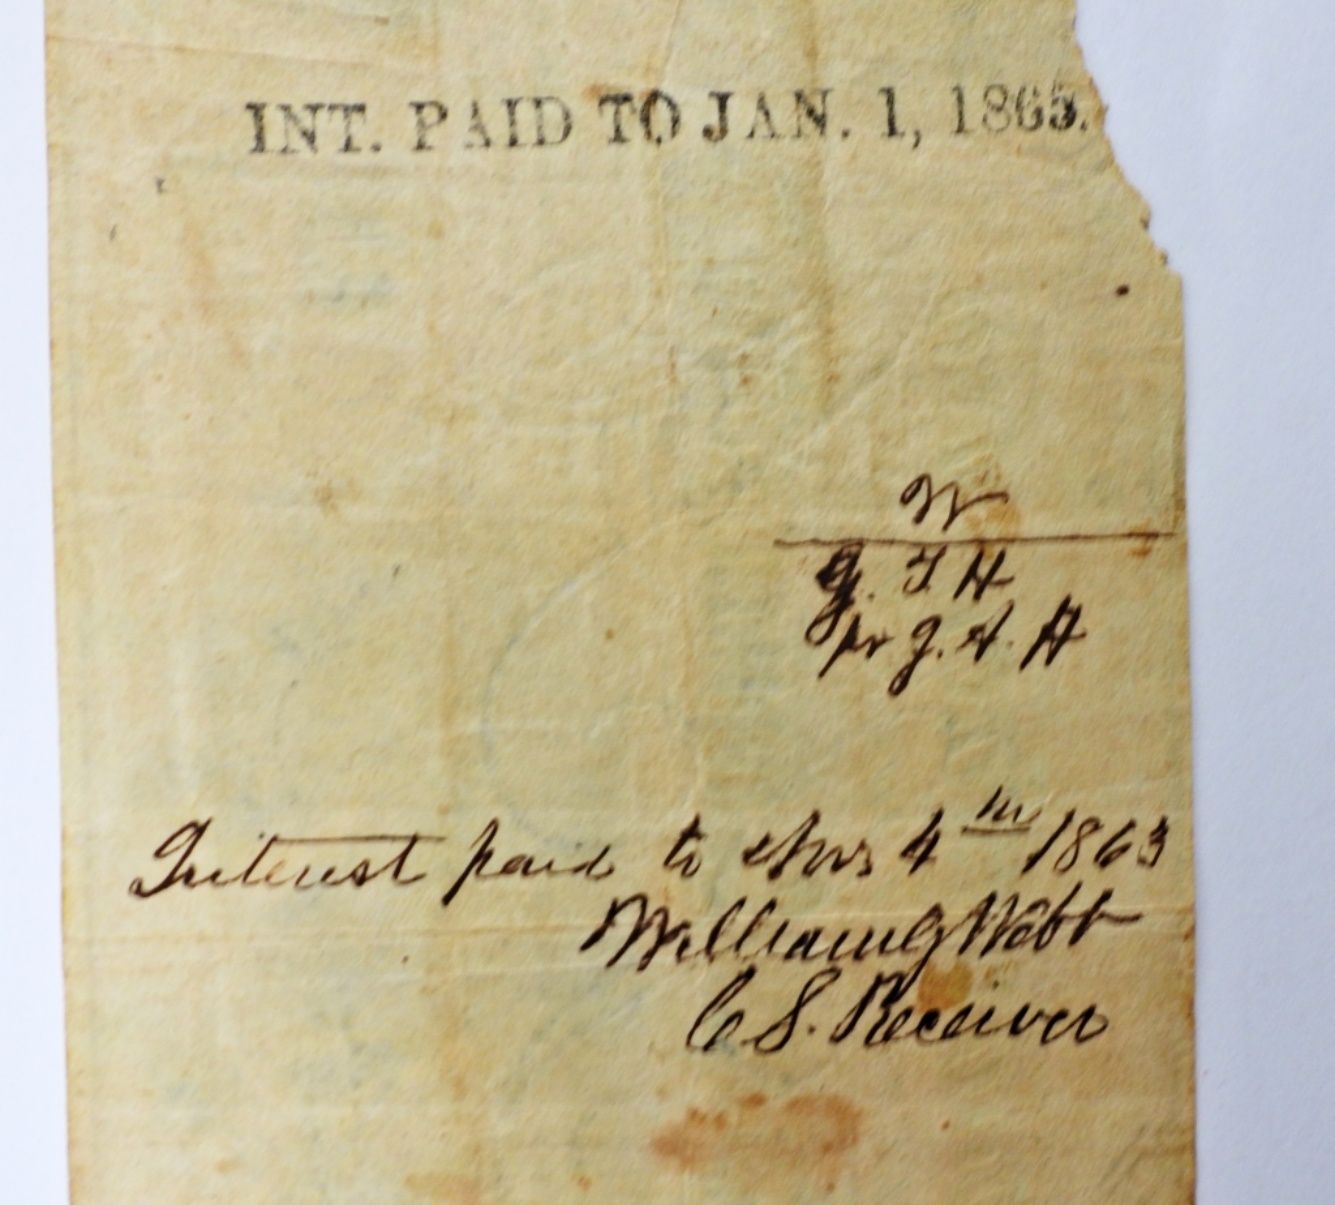 INT. PAID TO JAN. 1, 1863.
W
J. T H
pr J. A. H
Interest paid to Nov 4th 1863
William G Webb
C S. Receiver